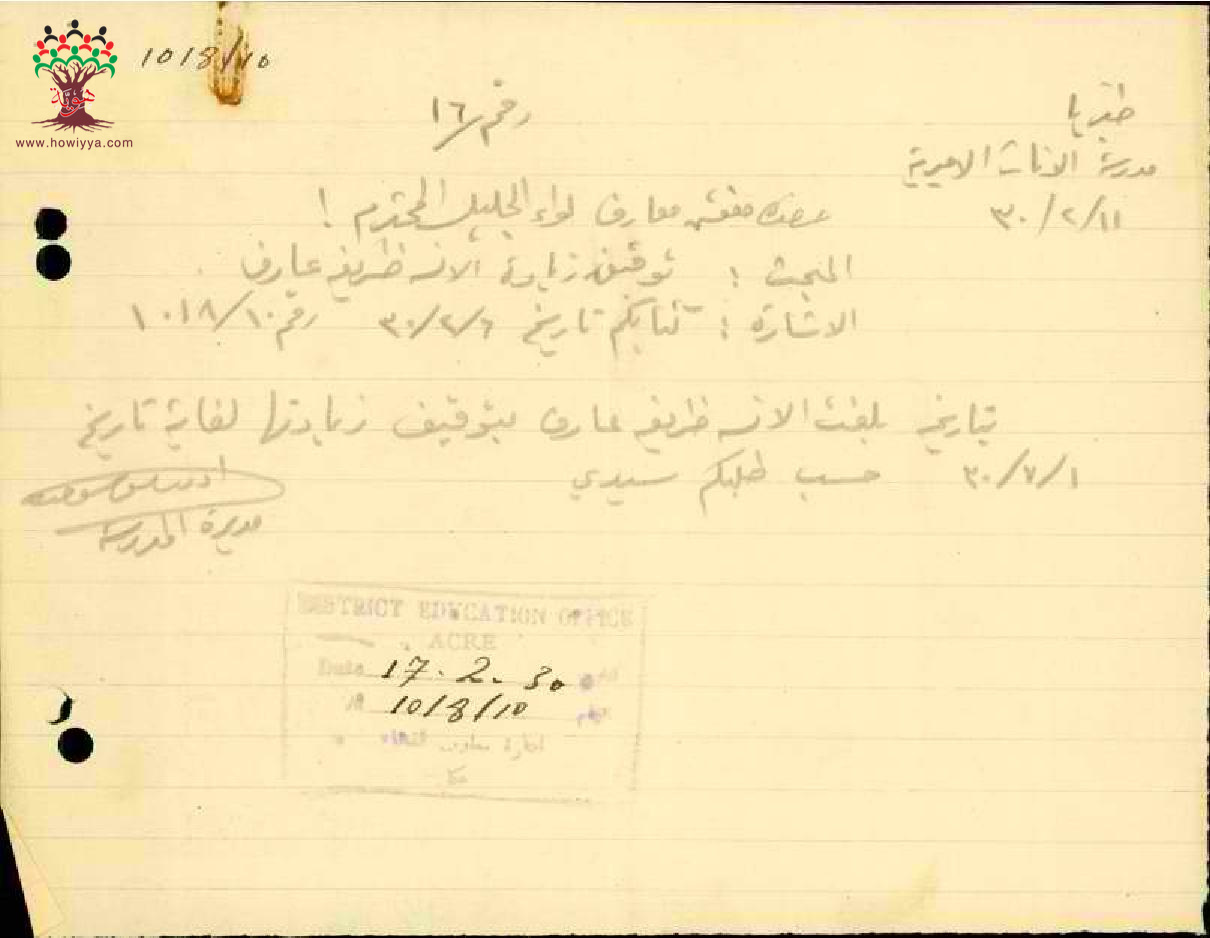 1018/10
www.howiyya.com
هوية
رقم /١٦
طبريا
مدرسة الاناث الاميرية
٣٠/٢/١١
حضرة مفتش معارف لواء الجليل المحترم !
المبحث : توقيف زيادة الانسه ظريفه عارف .
الاشارة : كتابكم تاريخ ٣٠/٢/٦ رقم ١٠١٨/١٠
بتاريخه بلغت الانسه ظريفه عارف بتوقيف زيادتها لغاية تاريخ
٣٠/٧/١ حسب طلبكم سيدي
مديرة المدرسة
DISTRICT EDUCATION OFFICE
ACRE
Date 17.2.30
1018/10
ادارة معارف القضاء
عكا